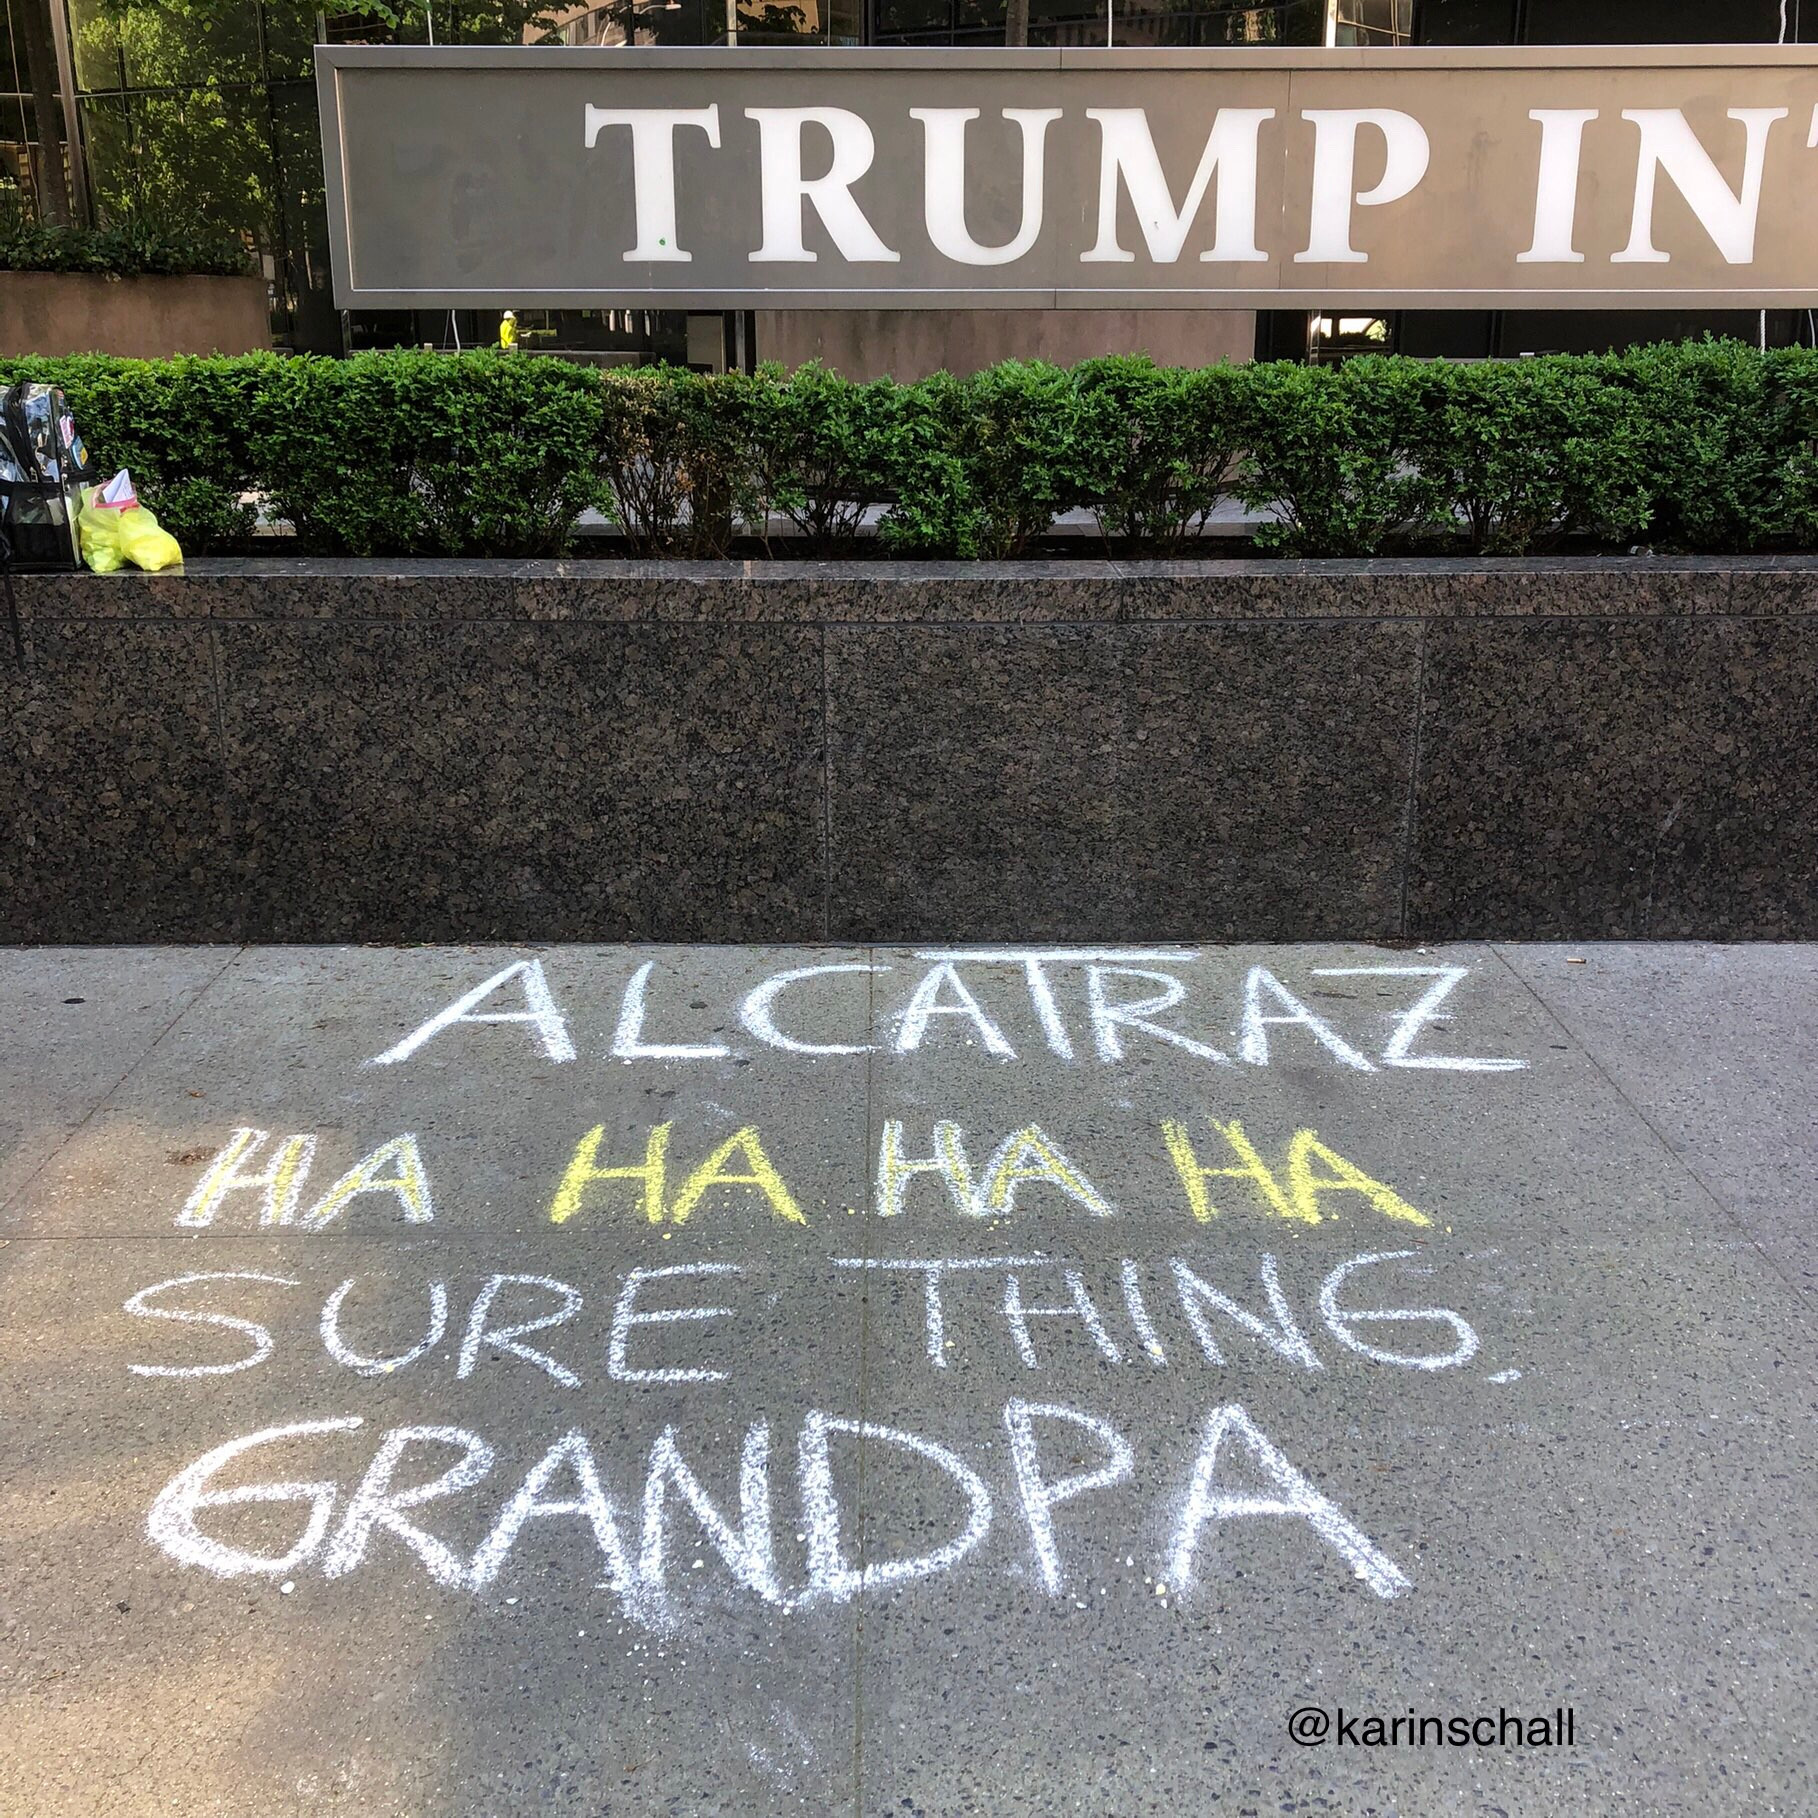 TRUMP IN
ALCATRAZ
HA HA HA HA
SURE THING,
GRANDPA
@karinschall